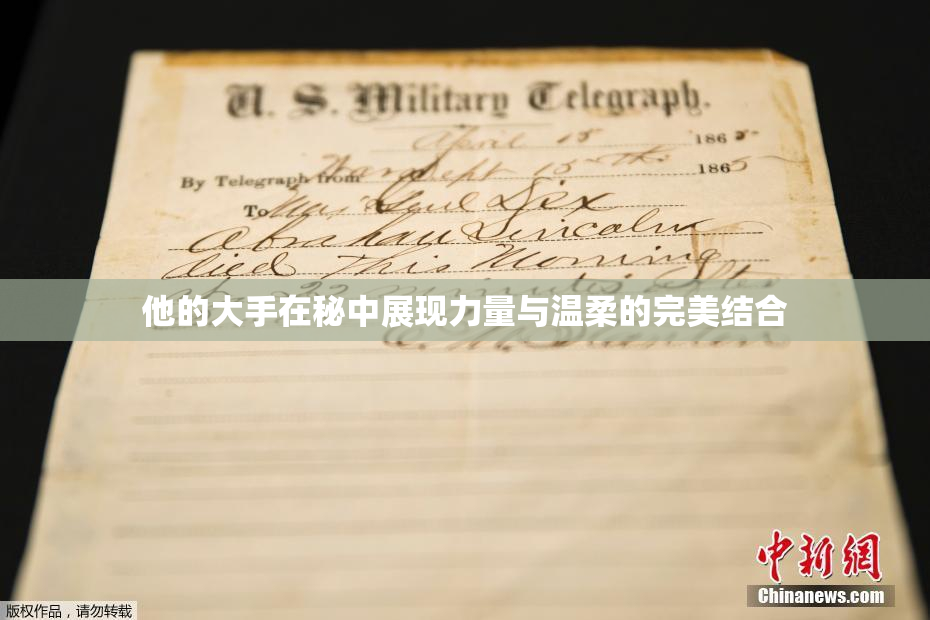 U. S. Military Telegraph.
April 15 1865-
By Telegraph from War Dept 15th 1865
To Maj Genl Dix
Abraham Lincoln
died This Morning
at 22 minutes after
他的大手在秘中展现力量与温柔的完美结合
E. M. Stanton
中新网
Chinanews.com
版权作品，请勿转载